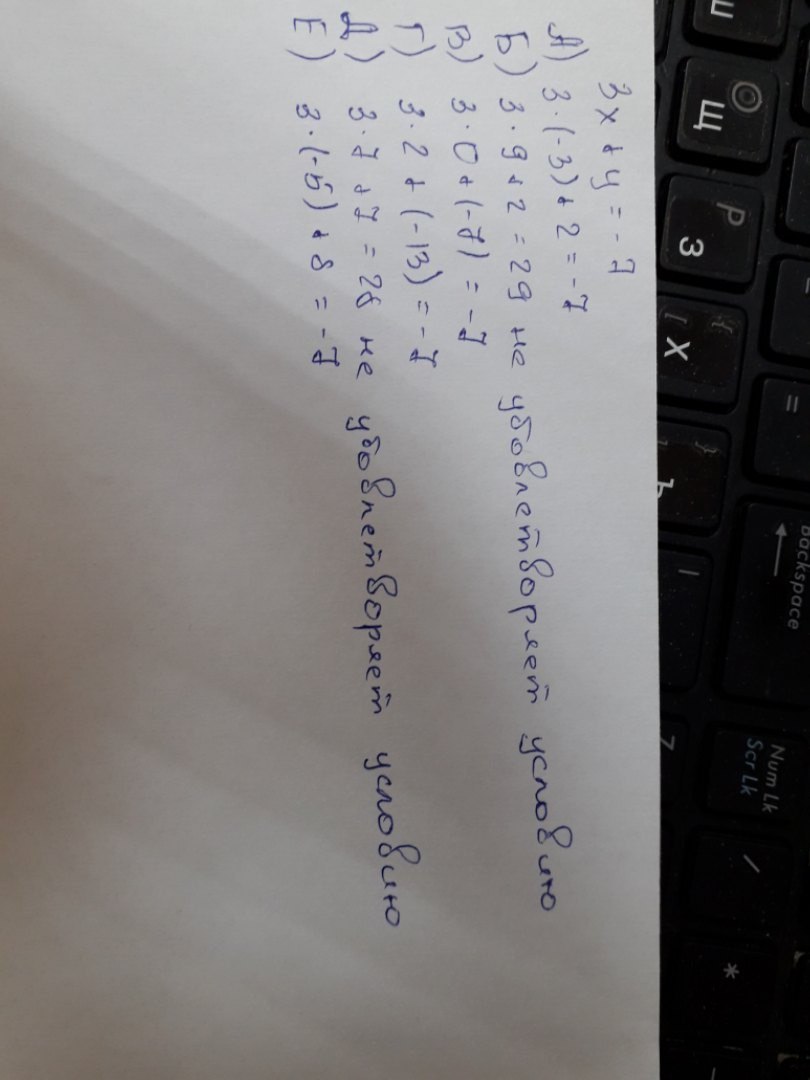 3x + y = -7
А) 3·(-3) + 2 = -7
Б) 3·9 + 2 = 29 не удовлетворяет условию
В) 3·0 + (-7) = -7
Г) 3·2 + (-13) = -7
Д) 3·7 + 7 = 28 не удовлетворяет условию
Е) 3·(-5) + 8 = -7
Ш
Щ
P
З
{
[
Х
}
Ъ
=
Backspace
7
Num Lk
Scr Lk
/
*